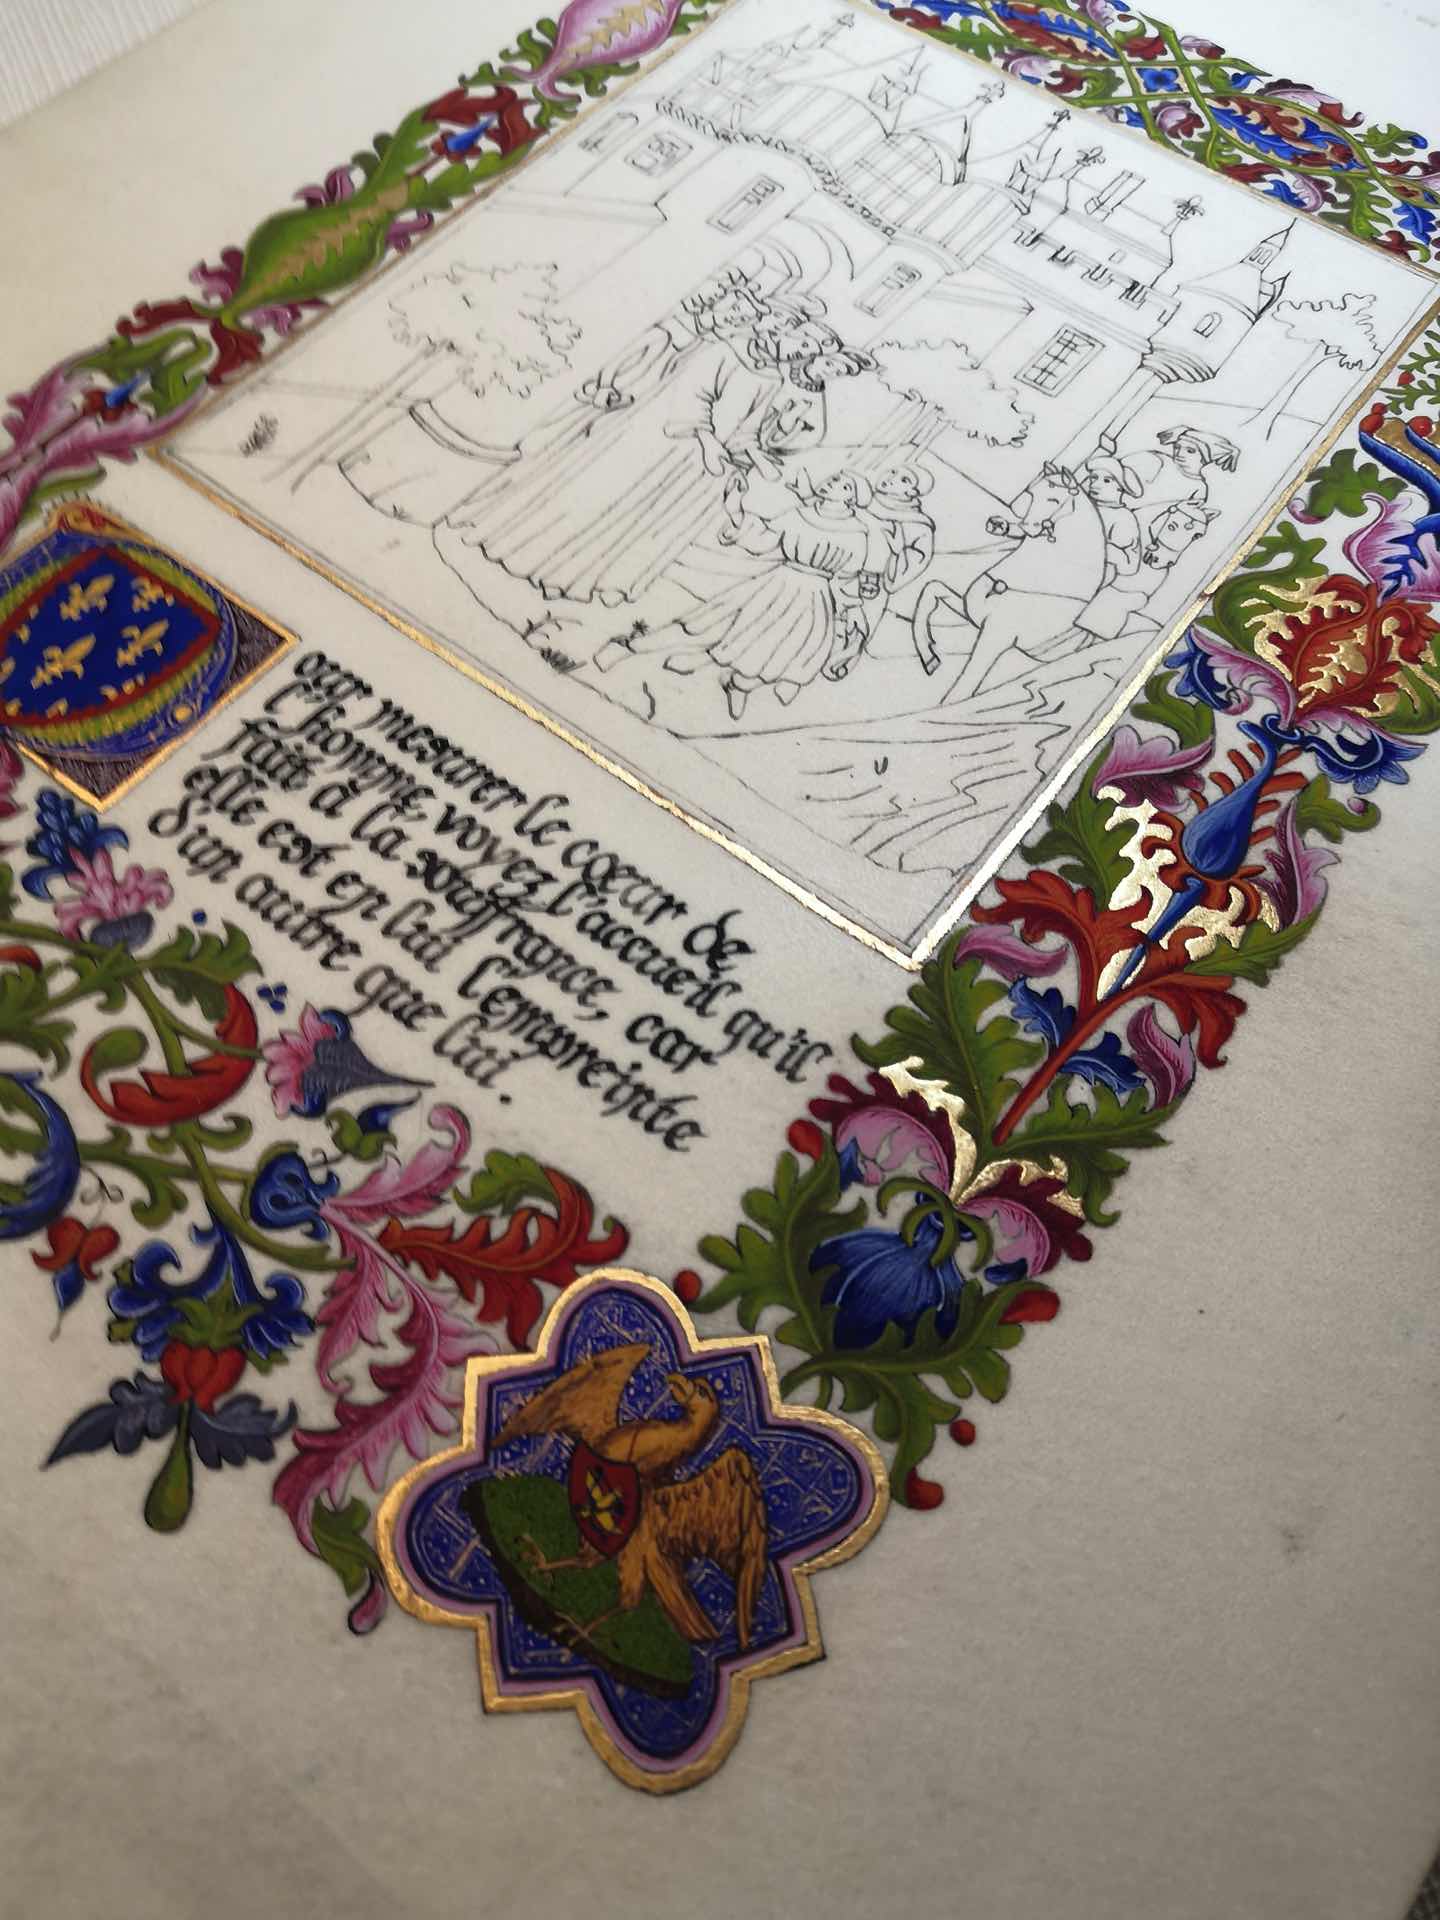 our mesurer le cœur de
l'homme, voyez l'accueil qu'il
fait à la souffrance, car
elle est en lui l'empreinte
d'un autre que lui.